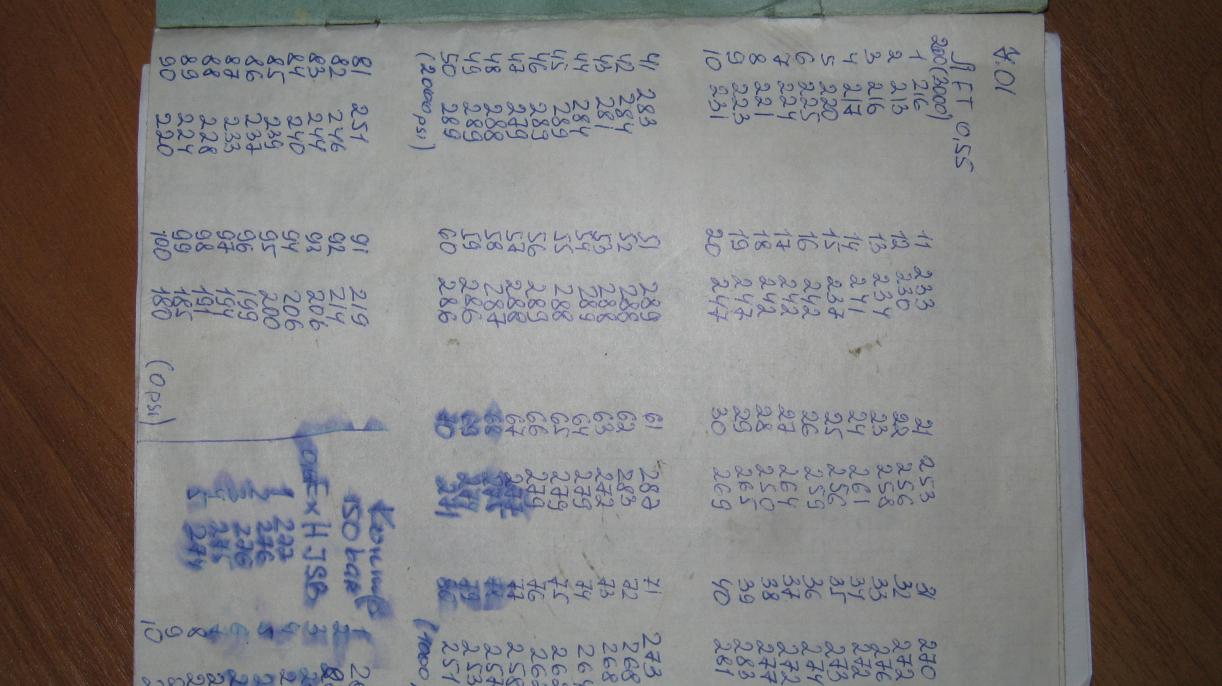 7.01
FT 0,55
200 (3000)
1 216 11 233 21 253 31 270
2 213 12 230 22 256 32 272
3 216 13 234 23 258 33 276
4 217 14 241 24 261 34 272
5 220 15 237 25 256 35 273
6 225 16 242 26 259 36 274
7 224 17 242 27 264 37 272
8 221 18 242 28 250 38 277
9 223 19 247 29 265 39 283
10 231 20 247 30 269 40 281
41 283 51 289 61 287 71 273
42 284 52 288 62 283 72 268
43 281 53 288 63 272 73 268
44 284 54 289 64 279 74 264
45 289 55 288 65 279 75
46 283 56 289 66 279 76
47 279 57 288 67 277 77 258
48 288 58 287 68 78 257
49 289 59 286 69 274 79 253
50 289 60 286 70 271 80 251
(2000 psi) (1000
81 251 91 219
82 246 92 214
83 244 93 206
84 240 94 206
85 239 95 200
86 237 96 199
87 233 97 194
88 228 98 191
89 224 99 185
90 220 100 180
(0 psi)
150 bar
H JSB
1 277
2 276
3 276
4 275
5 274
8
9
10